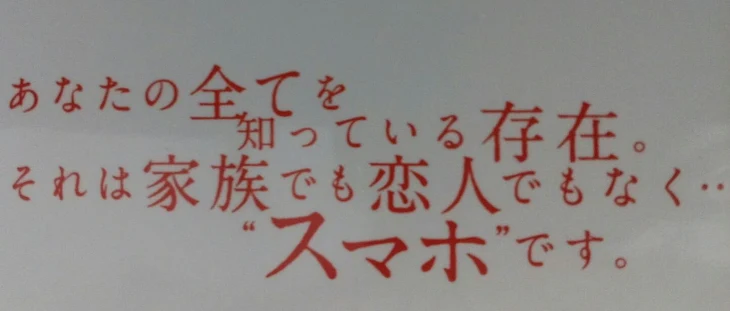 あなたの全てを
知っている存在。
それは家族でも恋人でもなく‥
“スマホ”です。